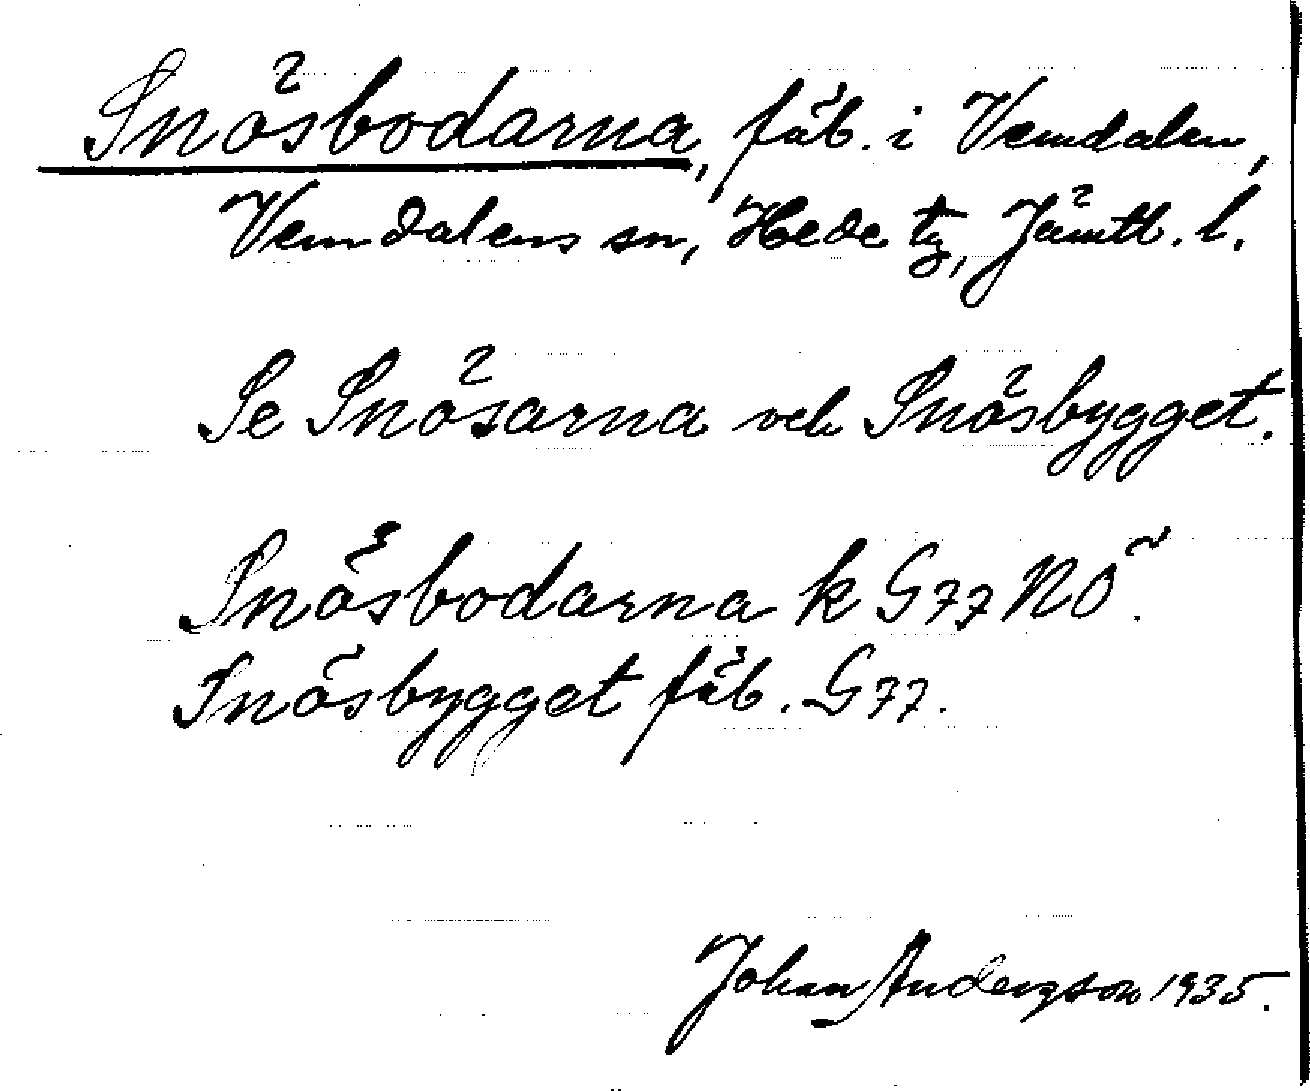 Snösbodarna, fäb. i Vemdalen,
Vemdalens sn, Hede tg, Jämtl. l.
Se Snösarna och Snösbygget.
Snösbodarna k G77 NÖ.
Snösbygget fäb. G77.
Johan Andersson 1935.